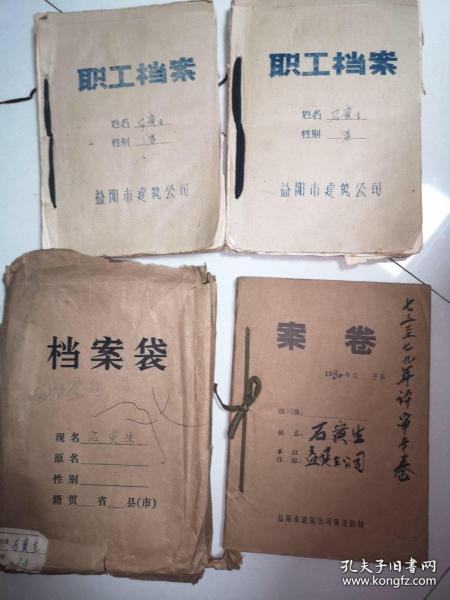 职工档案
姓名 石寅生
性别 男
益阳市建筑公司
职工档案
姓名 石寅生
性别 男
益阳市建筑公司
档案袋
现名 石寅生
原名
性别
籍贯 省 县(市)
石寅生
案卷
1980年度 字第
姓名: 石寅生
单位
住址: 益建公司
益阳市建筑公司保卫股制
七三至七九年评审专卷
孔夫子旧书网
www.kongfz.com